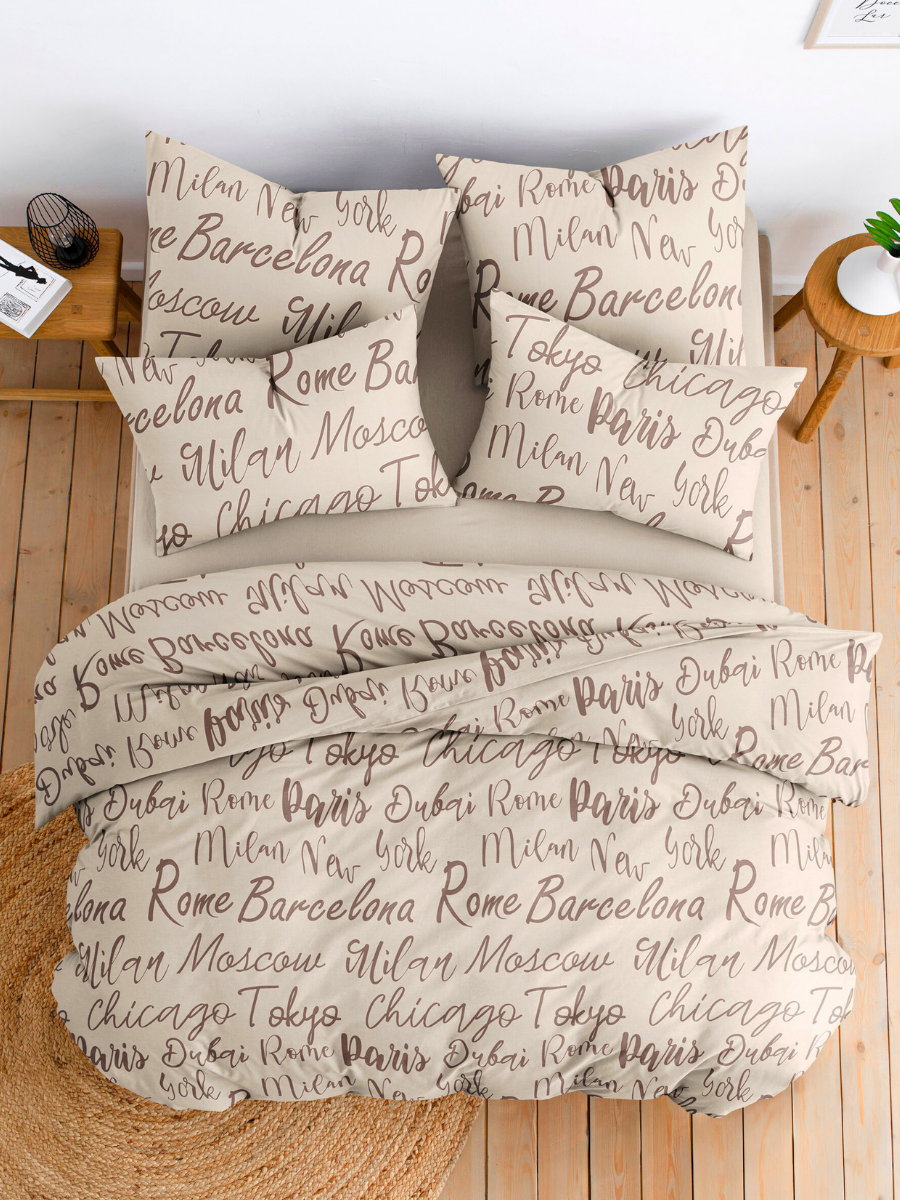 Milan New York
Barcelona Ro
Moscow Mil
Dubai Rome Paris Du
Milan New Yor
Rome Barcelona
Mil
New York
Rome Bar
rcelona
Milan Mosco
Chicago Tok
Tokyo Chicago
Rome Paris Duba
Milan New York
Rome B
Moscow Milan Moscow Milan Moscow
Rome Barcelona Rome Barcelona
Milan New
Dubai Rome Paris Dubai Rome Paris Dubai Rome
Dubai Rome Paris Dubai Rome P
York Milan
Rome Bar
Tokyo Chicago Tokyo
Dubai Rome Paris Dubai Rome Paris Dubai Rome
York Milan New York Milan New York Milan
elona Rome Barcelona Rome Barcelona Rome B
Milan Moscow Milan Moscow Milan Moscow
Chicago Tokyo Chicago Tokyo Chicago Tok
Paris Dubai Rome Paris Dubai Rome Paris Dubai R
York Milan New York Milan New York